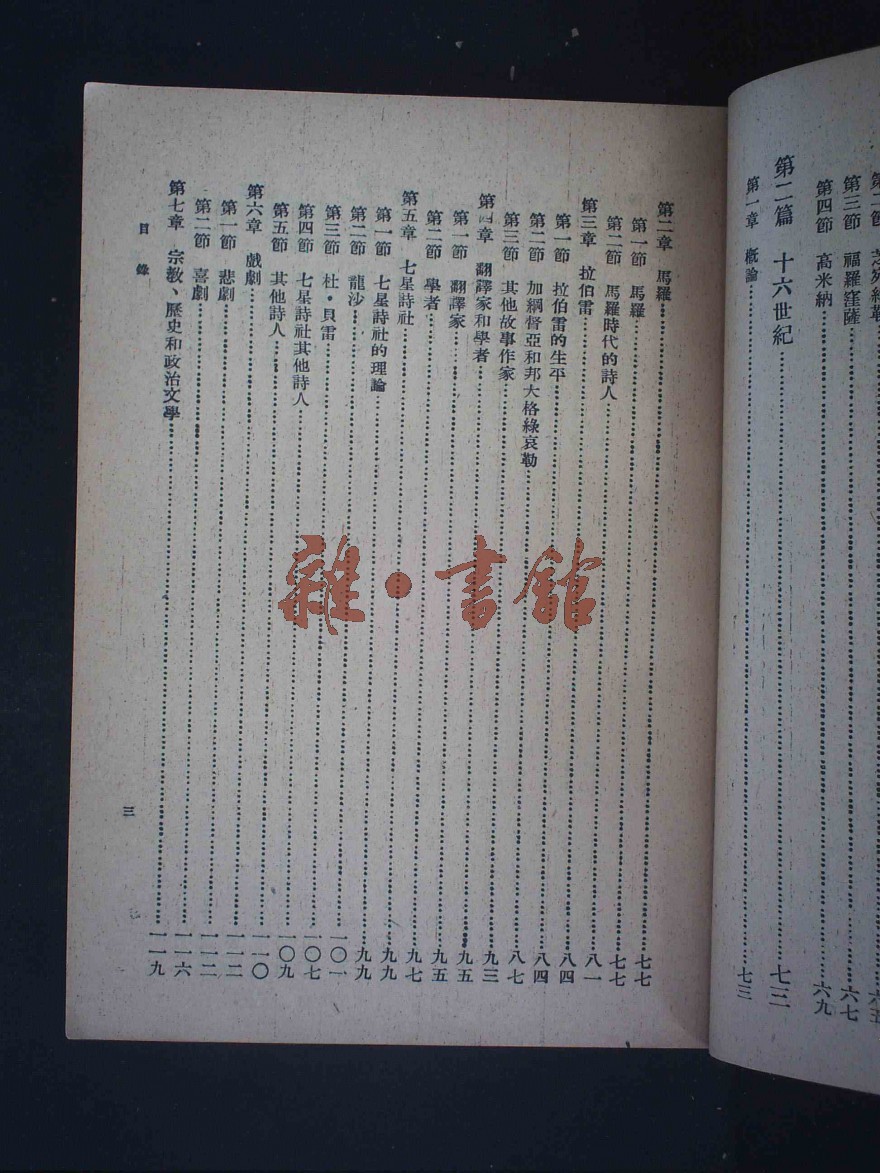 第三節 福羅窪薩……六七
第四節 高米納……六九
第二篇 十六世紀……七三
第一章 概論……七三
第二章 馬羅……七七
第一節 馬羅……七七
第二節 馬羅時代的詩人……八一
第三章 拉伯雷……八四
第一節 拉伯雷的生平……八四
第二節 加綱督亞和邦大格綠哀勒……八七
第三節 其他故事作家……九三
第四章 翻譯家和學者……九五
第一節 翻譯家……九五
第二節 學者……九七
第五章 七星詩社……九九
第一節 七星詩社的理論……九九
第二節 龍沙……一〇一
第三節 杜•貝雷……一〇七
第四節 七星詩社其他詩人……一〇九
第五節 其他詩人……一一〇
第六章 戲劇……一一二
第一節 悲劇……一一二
第二節 喜劇……一一六
第七章 宗教、歷史和政治文學……一一九
目錄
三
雜•書館